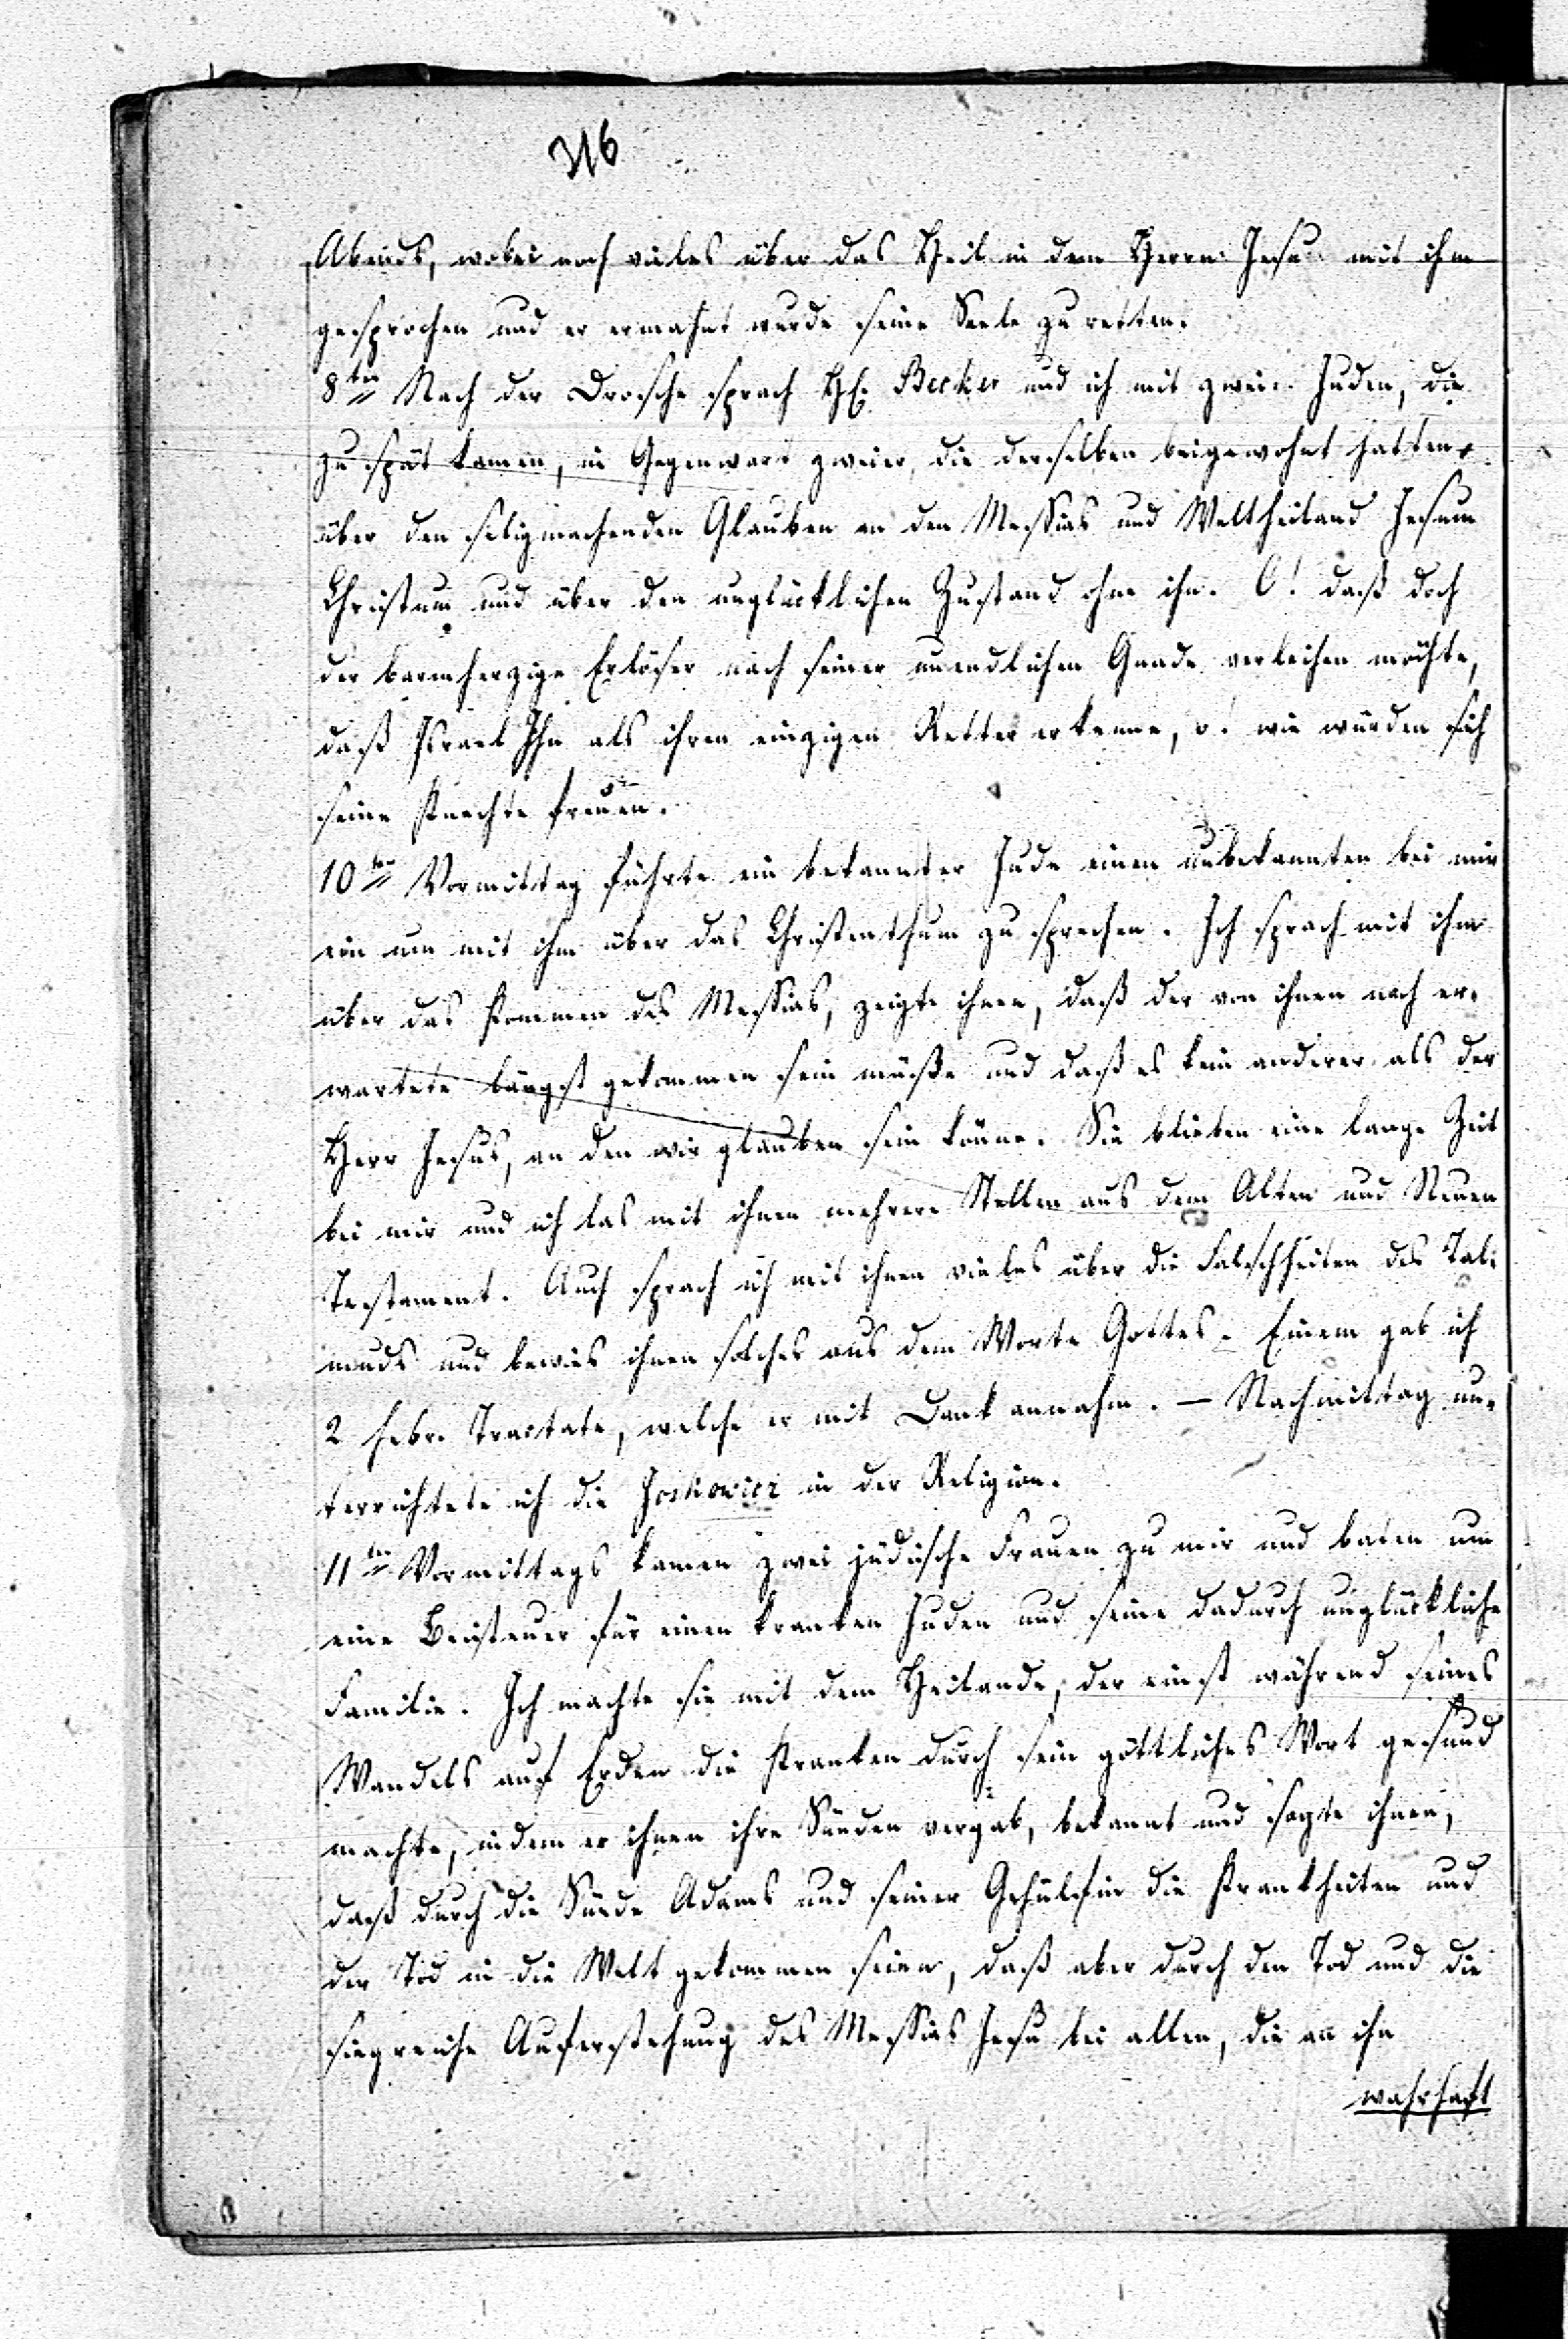 316
Abends, wobei noch vieles über das Heil in dem Herrn Jesu mit ihm
gesprochen und er ermahnt wurde seine Seele zu retten.
8ten Nach der Drosche sprach H. Becker und ich mit zween Juden, die
zu spät kamen, in Gegenwart zweier, die derselben beigewohnt hatten,
über den seligmachenden Glauben an den Messias und Weltheiland Jesum
Christum und über den unglücklichen Zustand ohne ihn. O! daß doch
der barmherzige Erlöser nach seiner unendlichen Gnade verleihen möchte,
daß Israel Ihn als ihren einzigen Retter erkenne, o! wie würden sich
seine Knechte freuen.
10ten Vormittag führte ein bekannter Jude einen unbekannten bei mir
ein um mit ihm über das Christenthum zu sprechen. Ich sprach mit ihm
über das Kommen des Messias, zeigte ihnen, daß der von ihnen noch er-
wartete längst gekommen sein müße und daß es kein anderer als der
Herr Jesus, an den wir glauben sein könne. Sie blieben eine lange Zeit
bei mir und ich las mit ihnen mehrere Stellen aus dem Alten und Neuen
Testament. Auch sprach ich mit ihnen vieles über die Falschheiten des Tal-
muds und bewies ihnen solches aus dem Worte Gottes. Einem gab ich
2 hebr. Tractate, welche er mit Dank annahm. — Nachmittag un-
terrichtete ich die Joskowicz in der Religion.
11ten Vormittags kamen zwei jüdische Frauen zu mir und baten um
eine Beisteuer für einen kranken Juden und seine dadurch unglückliche
Familie. Ich machte sie mit dem Heilande, der einst während seines
Wandels auf Erden die Kranken durch sein göttliches Wort gesund
machte, indem er ihnen ihre Sünden vergab, bekannt und sagte ihnen,
daß durch die Sünde Adams und seiner Gehülfin die Krankheiten und
der Tod in die Welt gekommen seien, daß aber durch den Tod und die
siegreiche Auferstehung des Messias Jesu bei allen, die an ihn
wahrhaft